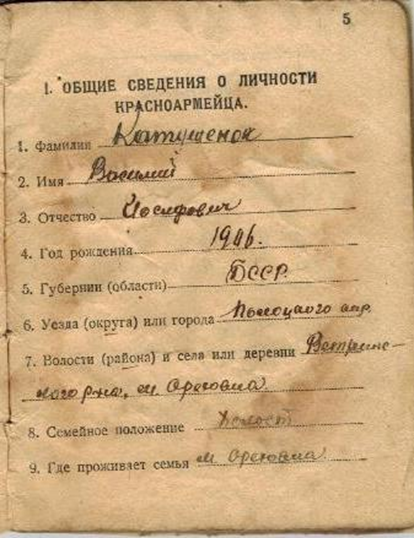 5
1. ОБЩИЕ СВЕДЕНИЯ О ЛИЧНОСТИ
КРАСНОАРМЕЙЦА.
1. Фамилия Катушенок
2. Имя Василий
3. Отчество Иосифович
4. Год рождения 1906.
5. Губернии (области) БССР.
6. Уезда (округа) или города Полоцкого окр.
7. Волости (района) и села или деревни Ветрин-
ского р-на, м. Ореховна.
8. Семейное положение Холост
9. Где проживает семья м. Ореховна.